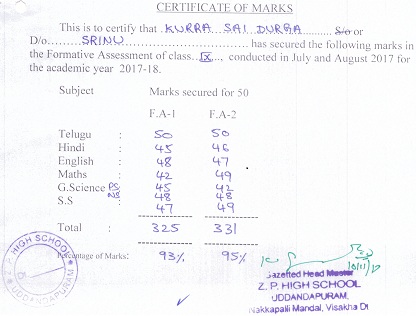 CERTIFICATE OF MARKS
This is to certify that KURRA SAI DURGA S/o or
D/o SRINU has secured the following marks in
the Formative Assessment of class IX, conducted in July and August 2017 for
the academic year 2017-18.
Subject Marks secured for 50
F.A-1 F.A-2
Telugu : 50 50
Hindi : 45 46
English : 48 47
Maths : 42 49
G.Science PS : 45 42
NS 48 48
S.S : 47 49
Total : 325 331
Percentage of Marks: 93% 95%
10/11/17
Gazetted Head Master
Z. P. HIGH SCHOOL
UDDANDAPURAM,
Nakkapalli Mandal, Visakha Dt
Z. P. HIGH SCHOOL
UDDANDAPURAM